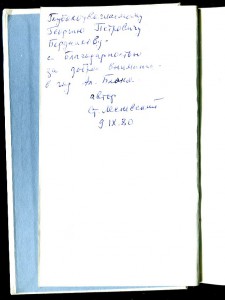 Глубокоуважаемому
Георгию Петровичу
Бердникову -
с благодарностью
за доброе внимание
в год Ал. Блока
автор
9 IX.80